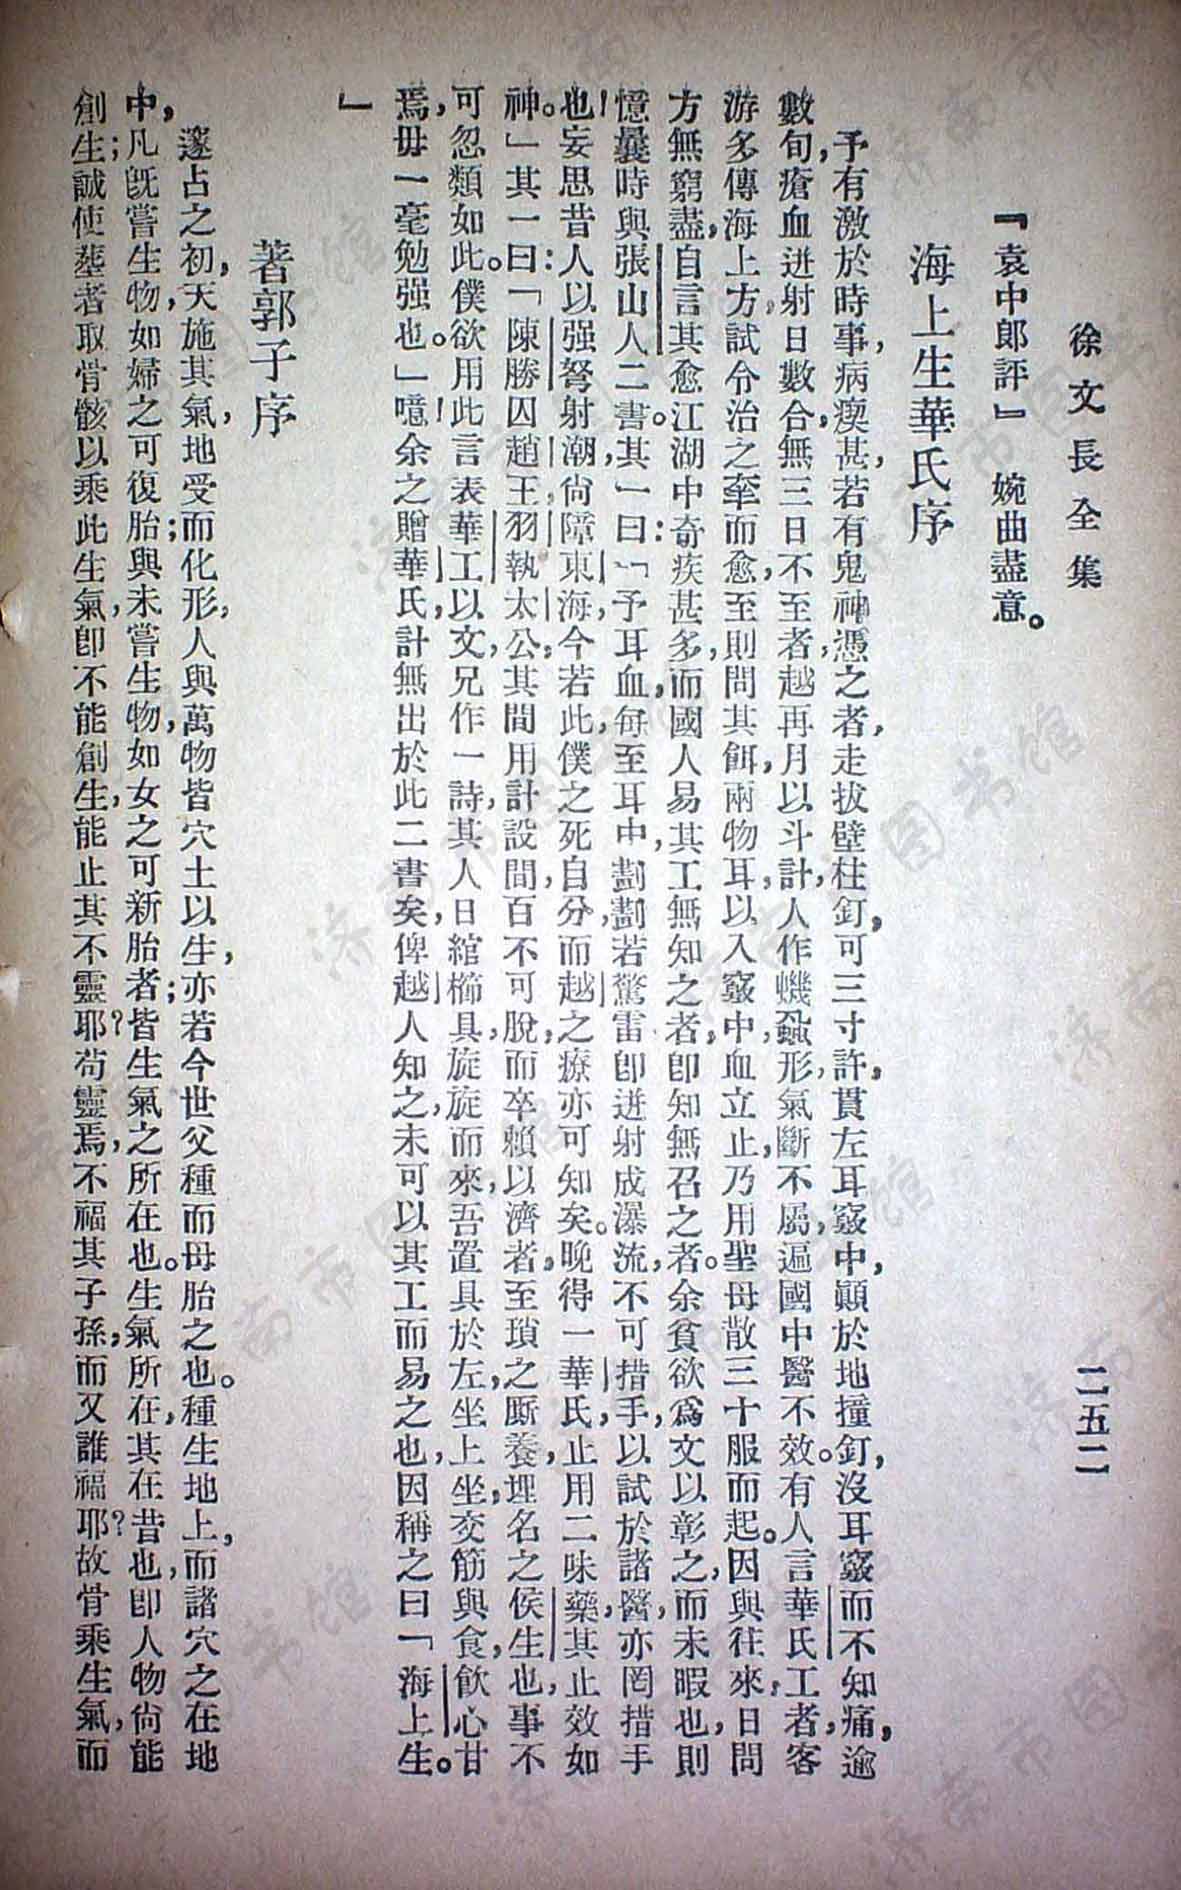 徐文長全集
二五二
『袁中郎評』 婉曲盡意。
海上生華氏序
予有激於時事，病瘈甚，若有鬼神憑之者，走拔壁柱釘，可三寸許，貫左耳竅中，顚於地撞釘，沒耳竅而不知痛，逾
數旬，瘡血迸射日數合，無三日不至者，越再月以斗計，人作蟣蝨形，氣斷不屬，遍國中醫不效。有人言華氏工者，客
游多傳海上方，試令治之，㧓而愈，至則問其餌，兩物耳，以入竅中血立止，乃用聖母散三十服而起。因與往來，日問
方無窮盡，自言其愈江湖中奇疾甚多，而國人易其工無知之者，卽知無召之者。余貧欲爲文以彰之，而未暇也，則
憶曩時與張山人二書。其一曰：「予耳血，每至耳中，劃劃若驚雷卽迸射成瀑流，不可措手，以試於諸醫，亦罔措手
也！妄思昔人以强弩射潮，尙障東海，今若此，僕之死自分，而越之療亦可知矣。晚得一華氏，止用二味藥，其止效如
神。」其一曰：「陳勝囚趙王，羽執太公，其間用計設間，百不可脫，而卒賴以濟者，至瑣之厮養，埋名之侯生也，事不
可忽類如此。僕欲用此言表華工以文，兄作一詩，其人日綰櫛具，旋旋而來，吾置具於左，坐上坐，交筋與食，飮心甘
焉，毋一毫勉强也。」噫！余之贈華氏，計無出於此二書矣，俾越人知之，未可以其工而易之也，因稱之曰「海上生。
」
著郭子序
邃占之初，天施其氣，地受而化形，人與萬物皆穴土以生，亦若今世父種而母胎之也。種生地上，而諸穴之在地
中，凡旣嘗生物，如婦之可復胎；與未嘗生物，如女之可新胎者；皆生氣之所在也。生氣所在，其在昔也，卽人物尙能
創生；誠使塟者取骨骸以乘此生氣，卽不能創生，能止其不靈耶？苟靈焉，不福其子孫，而又誰福耶？故骨乘生氣，而